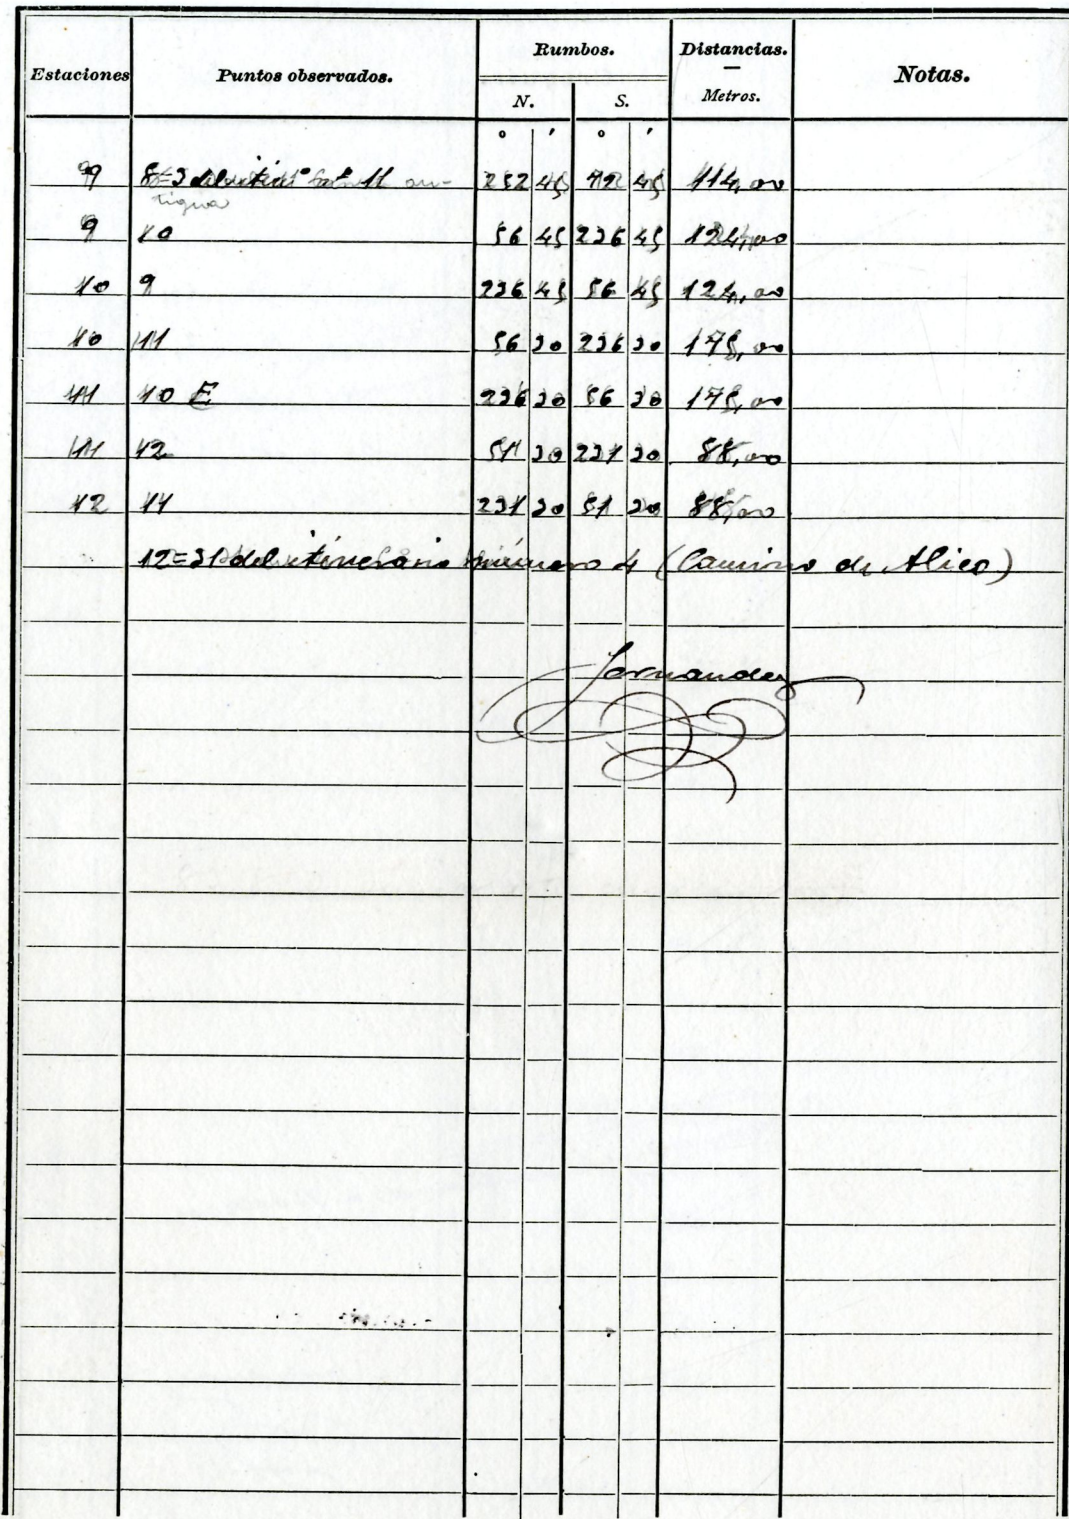 Estaciones Puntos observados. Rumbos. Distancias. — Metros. Notas.
N. S.
° ′ ° ′
9 8=3 del 11 an-
tigua
252 45 72 45 114,00
9 10 56 45 236 45 124,00
10 9 236 45 56 45 124,00
10 11 56 30 236 30 175,00
11 10 E 236 30 56 30 175,00
11 12 51 30 231 30 88,00
12 11 231 30 51 30 88,00
12=31 del itinerario número 4 (Camino de Alico)
Fernandez